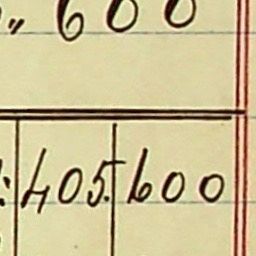 „ 600
: 405. 600